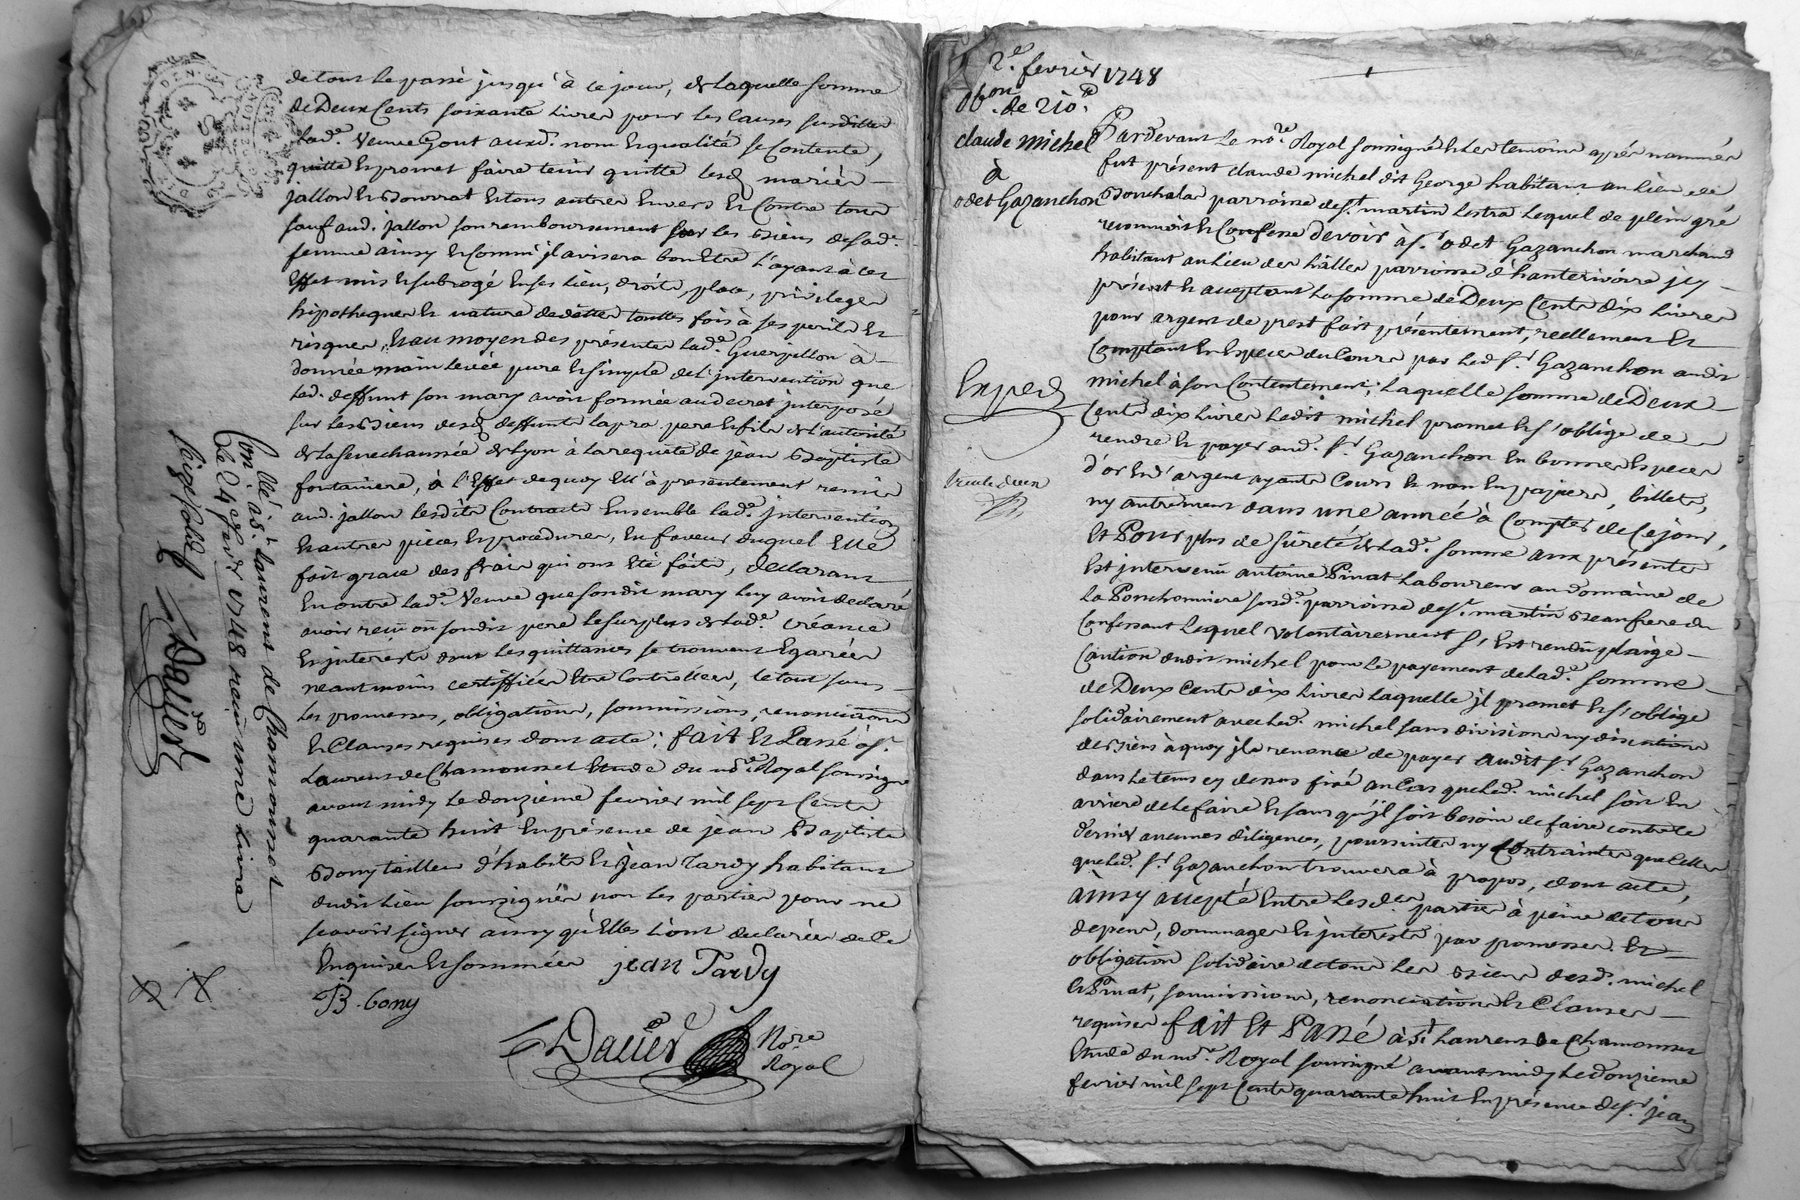 de tout le passé jusqu'à ce jour, de laquelle somme
de Deux Cents soixante livres pour les causes susdittes
lad.e Veuve Gout auxd. nom et qualité se Contente,
quitte et promet faire tenir quitte lesd mariés
jallon et Bourrat et tous autres Envers et Contre tous
sauf aud. jallon son remboursement sur les Biens de sad.e
femme ainsy et Comm' il avisera bon Etre l'ayant à cet
Effet mis et subrogé En ses lieu, droits, place, privileges
hipotheques et nature de dettes touttes fois à ses perils et
risques, et au moyen des présentes lad.e Guerpillon à
donnée main levée pure et simple de l'intervention que
led. deffunt son mary avoit formée au decret interposé
sur les Biens desd deffunts lapra pere et fils de l'autorité
de la senechaussée de Lyon à la requete de jean Baptiste
fontaniere, à l'Effet de quoy Ell' à presentement remis
aud. jallon lesdits Contracts Ensemble lad.e intervention
et autres pièces et procedures, En faveur duquel Elle
fait grace des frais qui ont Eté faits, declarant
En outre lad.e Veuve que sondit mary luy avoit declaré
avoir reçu ou sondit pere le surplus de lad.e créance
et interests dont les quittances se trouvent Egarées
neantmoins certiffiées Etre Controllées, le tout sous
les promesses, obligations, soumissions, renonciations
et Clauses requises dont acte; fait et Passé à S.t
Laurent de Chamousset Etude du no.re Royal soussigné
avant midy le douzieme fevrier mil sept Cents
quarante huit En présence de jean Baptiste
Bony tailleur d'habits et jean Tardy habitants
dudit lieu soussignés non les parties pour ne
sçavoir signer ainsy qu'Elles l'ont declarées de Ce
Enquises et sommées jean Tardy
JB. bony
Dalier No.re
Royal
Con.llé à S.t Laurent de Chamousset
le 24 fevr 1748 reçu une livre
Dalier
2.e fevrier 1748
Ob.on de 210.#
claude michel
à
odet Gazanchon
Exped
Pardevant le no.re Royal soussigné et les temoins après nommés
fut présent claude michel dit George habitant au lieu de
Bouchala parroisse de S.t martin Lestra lequel de plein gré
reconnoit et Confesse devoir à S.r odet Gazanchon marchand
habitant au lieu des halles parroisse d'hauterivoire icy
présent et acceptant la somme de Deux Cents dix livres
pour argent de prest fait présentement, reellement et
Comptant En Especes du Cours par led. S.r Gazanchon audit
michel à son Contentement; laquelle somme de Deux
Cents dix livres ledit michel promet et s'oblige de
rendre et payer aud. S.r Gazanchon En bonnes Especes
d'or et d'argent ayants Cours et non En papiers, billets,
ny autrement dans une année à Compter de Ce jour,
Et Pour plus de sûreté de lad.e somme aux présentes
Est intervenu antoine Pinat laboureur au domaine de
la Ponchonniere susd.e parroisse de S.t martin Beaufrere du
Confessant lequel volontairement s'Est rendu plaige
Caution dudit michel pour le payement de lad.e somme
de Deux Cents dix livres laquelle il promet et s'oblige
solidairement avec led. michel sans division ny discution
de Biens à quoy il a renoncé de payer audit S.r Gazanchon
dans le tems cy dessus fixé au Cas que led. michel soit En
arriere de le faire et sans qu'il soit besoin de faire contre le
dernier aucunes diligences, poursuittes ny Contraintes que Celles
que led. S.r Gazanchon trouvera à propos, dont acte,
ainsy accepté Entre lesd.es parties à peine de tous
depens, dommages et interests par promesses et
obligation solidaire de tous les Biens desd. michel
et Pinat, soumissions, renonciations et Clauses
requises fait et Passé à S.t Laurens de Chamousset
Etude du no.re Royal soussigné avant midy le douzieme
fevrier mil sept Cents quarante huit En présence de S.r jean